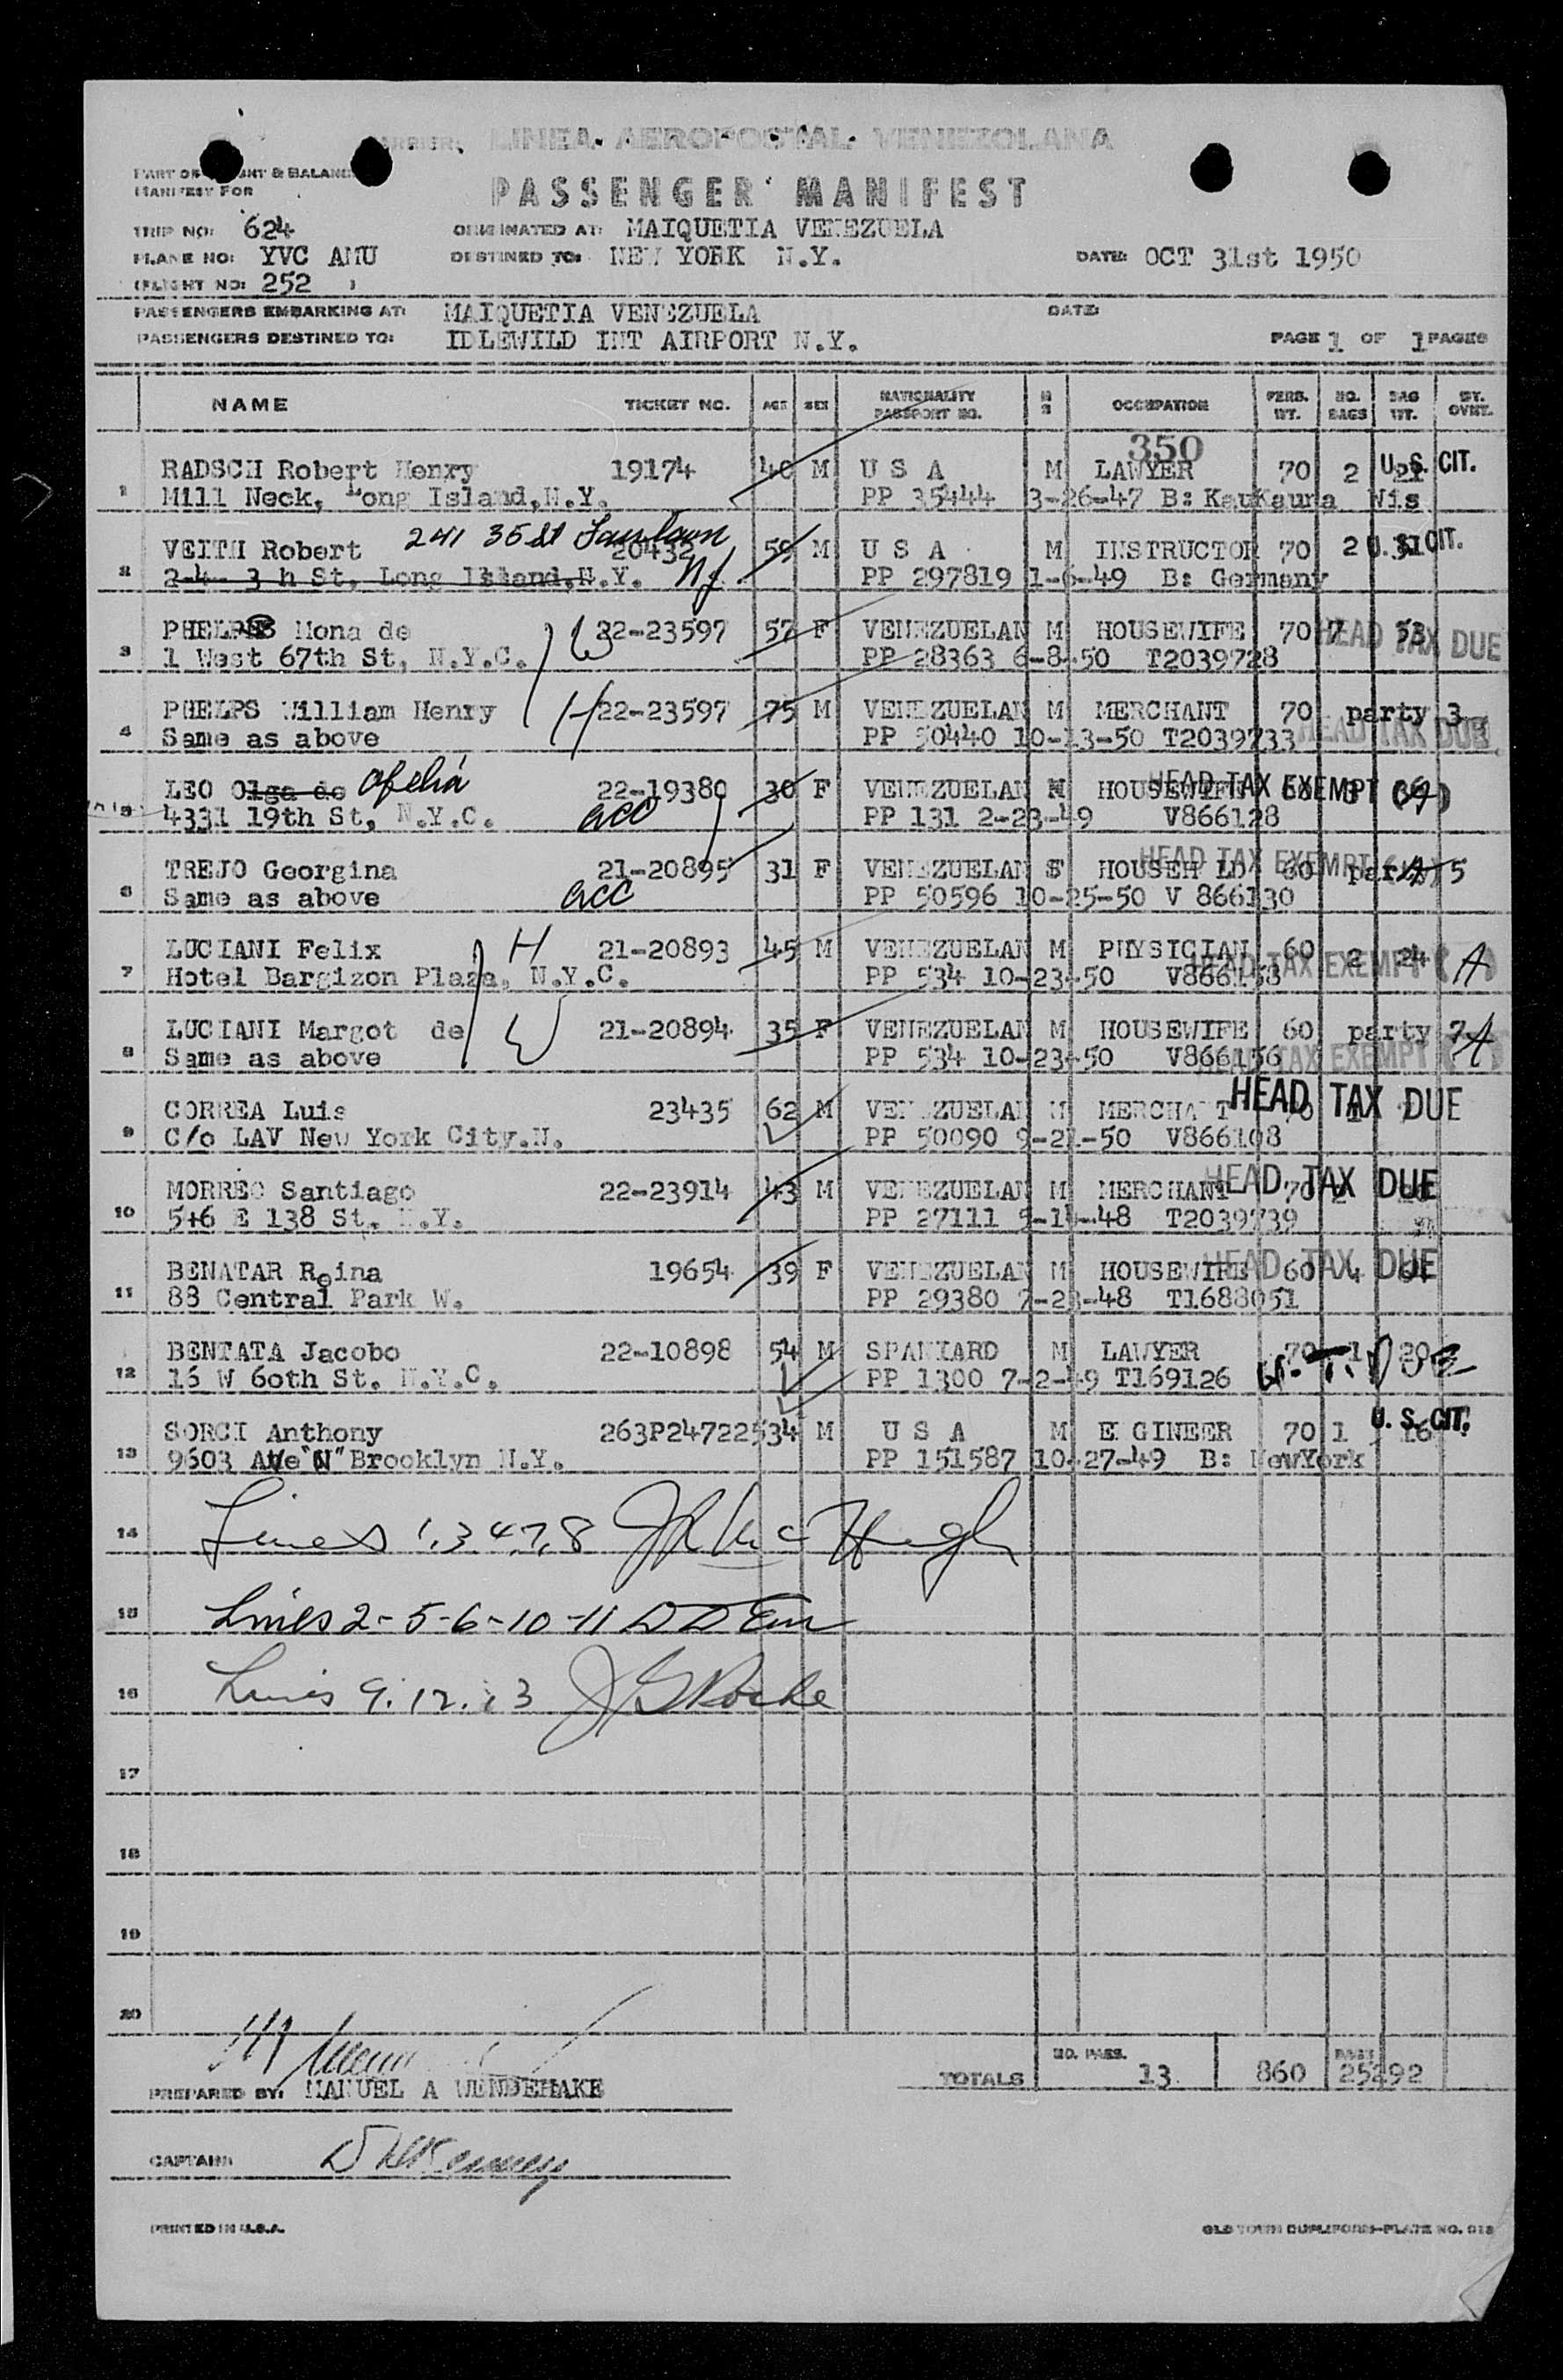 LINEA AEROPOSTAL VENEZOLANA
PASSENGER MANIFEST
MANIFEST FOR
TRIP NO: 624 ORIGINATED AT: MAIQUETIA VENEZUELA
PLANE NO: YVC AMU DESTINED TO: NEW YORK N.Y. DATE: OCT 31st 1950
(FLIGHT NO: 252 )
PASSENGERS EMBARKING AT: MAIQUETIA VENEZUELA DATE:
PASSENGERS DESTINED TO: IDLEWILD INT AIRPORT N.Y. PAGE 1 OF 1 PAGES
NAME TICKET NO. AGE SEX NATIONALITY PASSPORT NO. OCCUPATION PERS. WT. NO. BAGS BAG WT. WT. OVWT.
350
RADSCH Robert Henry 19174 M U S A M LAWYER 70 2 U.S. CIT.
1 Mill Neck, Long Island, N.Y. PP 35444 3-26-47 B: KauKauna Wis
VEITH Robert 241 35 St Fairlawn 20432 M U S A M INSTRUCTOR 70 2 U.S. CIT.
2 Long Island, N.Y. NJ PP 297819 1-6-49 B: Germany
PHELPS Mona de W 22-23597 57 F VENEZUELAN M HOUSEWIFE 70 7 53 HEAD TAX DUE
3 1 West 67th St, N.Y.C. PP 28363 6-8-50 T2039728
PHELPS William Henry H 22-23597 75 M VENEZUELAN M MERCHANT 70 party 3
4 Same as above PP 50440 10-13-50 T2039733 HEAD TAX DUE
LEO Olga de Ofelia 22-19380 30 F VENEZUELAN M HOUSEWIFE HEAD TAX EXEMPT
5 4331 19th St, N.Y.C. acc PP 131 2-23-49 V866128
TREJO Georgina 21-20895 31 F VENEZUELAN S HOUSEH LD 60 HEAD TAX EXEMPT party 5
6 Same as above acc PP 50596 10-25-50 V 866130
LUCIANI Felix H 21-20893 45 M VENEZUELAN M PHYSICIAN 60 2 24
7 Hotel Bargizon Plaza, N.Y.C. PP 534 10-23-50 V866158 HEAD TAX EXEMPT (A)
LUCIANI Margot de W 21-20894 35 F VENEZUELAN M HOUSEWIFE 60 party 7 A
8 Same as above PP 534 10-23-50 V866156 HEAD TAX EXEMPT
CORREA Luis 23435 62 M VENEZUELAN M MERCHANT HEAD TAX DUE
9 C/o LAV New York City.N. PP 50090 9-21-50 V866108
MORREO Santiago 22-23914 43 M VENEZUELAN M MERCHANT 70 HEAD TAX DUE
10 5+6 E 138 St. N.Y. PP 27111 5-14-48 T2039739
BENATAR Reina 19654 39 F VENEZUELAN M HOUSEWIFE 60 HEAD TAX DUE
11 88 Central Park W. PP 29380 7-23-48 T1688051
BENTATA Jacobo 22-10898 54 M SPANIARD M LAWYER 70 1 20
12 16 W 60th St. N.Y.C. PP 1300 7-2-49 T169126 H.T. Due
SORCI Anthony 263P247225 34 M U S A M E GINEER 70 1 16 U.S. CIT.
13 9603 Ave "N" Brooklyn N.Y. PP 151587 10-27-49 B: NewYork
14 Lines 1,3 4,7,8 J R McHugh
15 Lines 2-5-6-10-11
16 Lines 9.12.13 J G Roche
17
18
19
20
PREPARED BY: MANUEL A WENDEHAKE TOTALS NO. PASS. 13 860 25 292
CAPTAIN:
PRINTED IN U.S.A. OLD TOWN DUPLIFORM-PLATE NO. 918